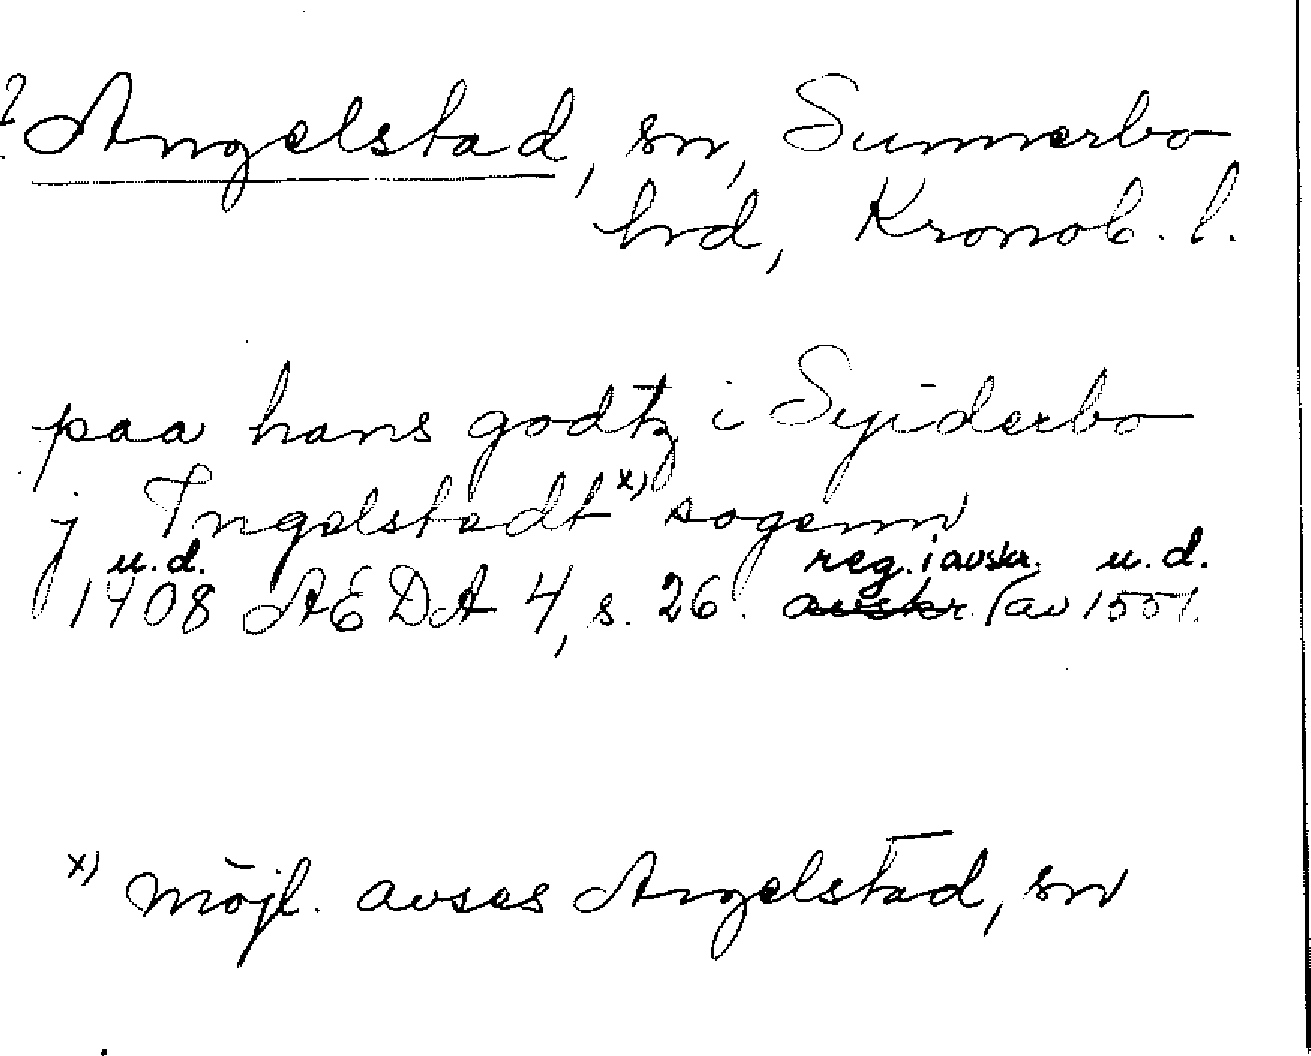 ? Angelstad, sn, Sunnerbo
hrd, Kronob. l.
paa hans godtz i Syiderbo
j Ingelstadt x) sogenn
u.d. reg. i avskr. u.d.
1408 AEDA 4, s. 26. avskr. (av 1551.
x) möjl. avses Angelstad, sn